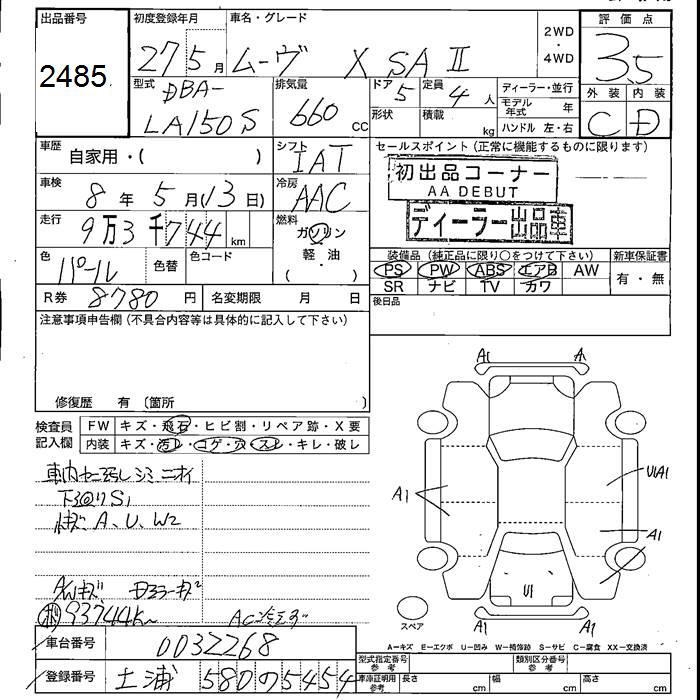 出品番号
2485
初度登録年月
27 5 月
車名・グレード
ムーヴ X SAⅡ
2WD
・
4WD
評価点
3.5
外装 内装
C D
型式
DBA-
LA150S
排気量
660 cc
ドア
5
形状
定員
4 人
積載
kg
ディーラー・並行
モデル年式 年
ハンドル 左・右
車歴
自家用・( )
シフト
IAT
セールスポイント(正常に機能するものに限ります)
初出品コーナー
AA DEBUT
ディーラー出品車
車検
8 年 5 月(13日)
冷房
AAC
走行
9万3千744 km
燃料
ガソリン
軽・油
( )
色
パール
色替
色コード
装備品(純正品に限り○をつけて下さい)
PS PW ABS エアB AW
SR ナビ TV カワ
新車保証書
有・無
R券 8780 円
名変期限 月 日
後日品
注意事項申告欄(不具合内容等は具体的に記入して下さい)
修復歴 有 〔箇所 〕
検査員
記入欄
FW キズ・飛石・ヒビ割・リペア跡・X要
内装 キズ・汚レ・コゲ・穴・スレ・キレ・破レ
車内ヤニ汚レ シミ ニオイ
下回りS1
キズ、A、U、W2
93744K
A1 A1
A1
U1A1
A1
U1
A1 A1
スペア
A=キズ E=エクボ U=凹み W=補修跡 S=サビ C=腐食 XX=交換済
車台番号
0032268
型式指定番号
参考
類別区分番号
参考
登録番号
土浦 580 の 5454
車庫証明用
参考
長さ cm
幅 cm
高さ cm